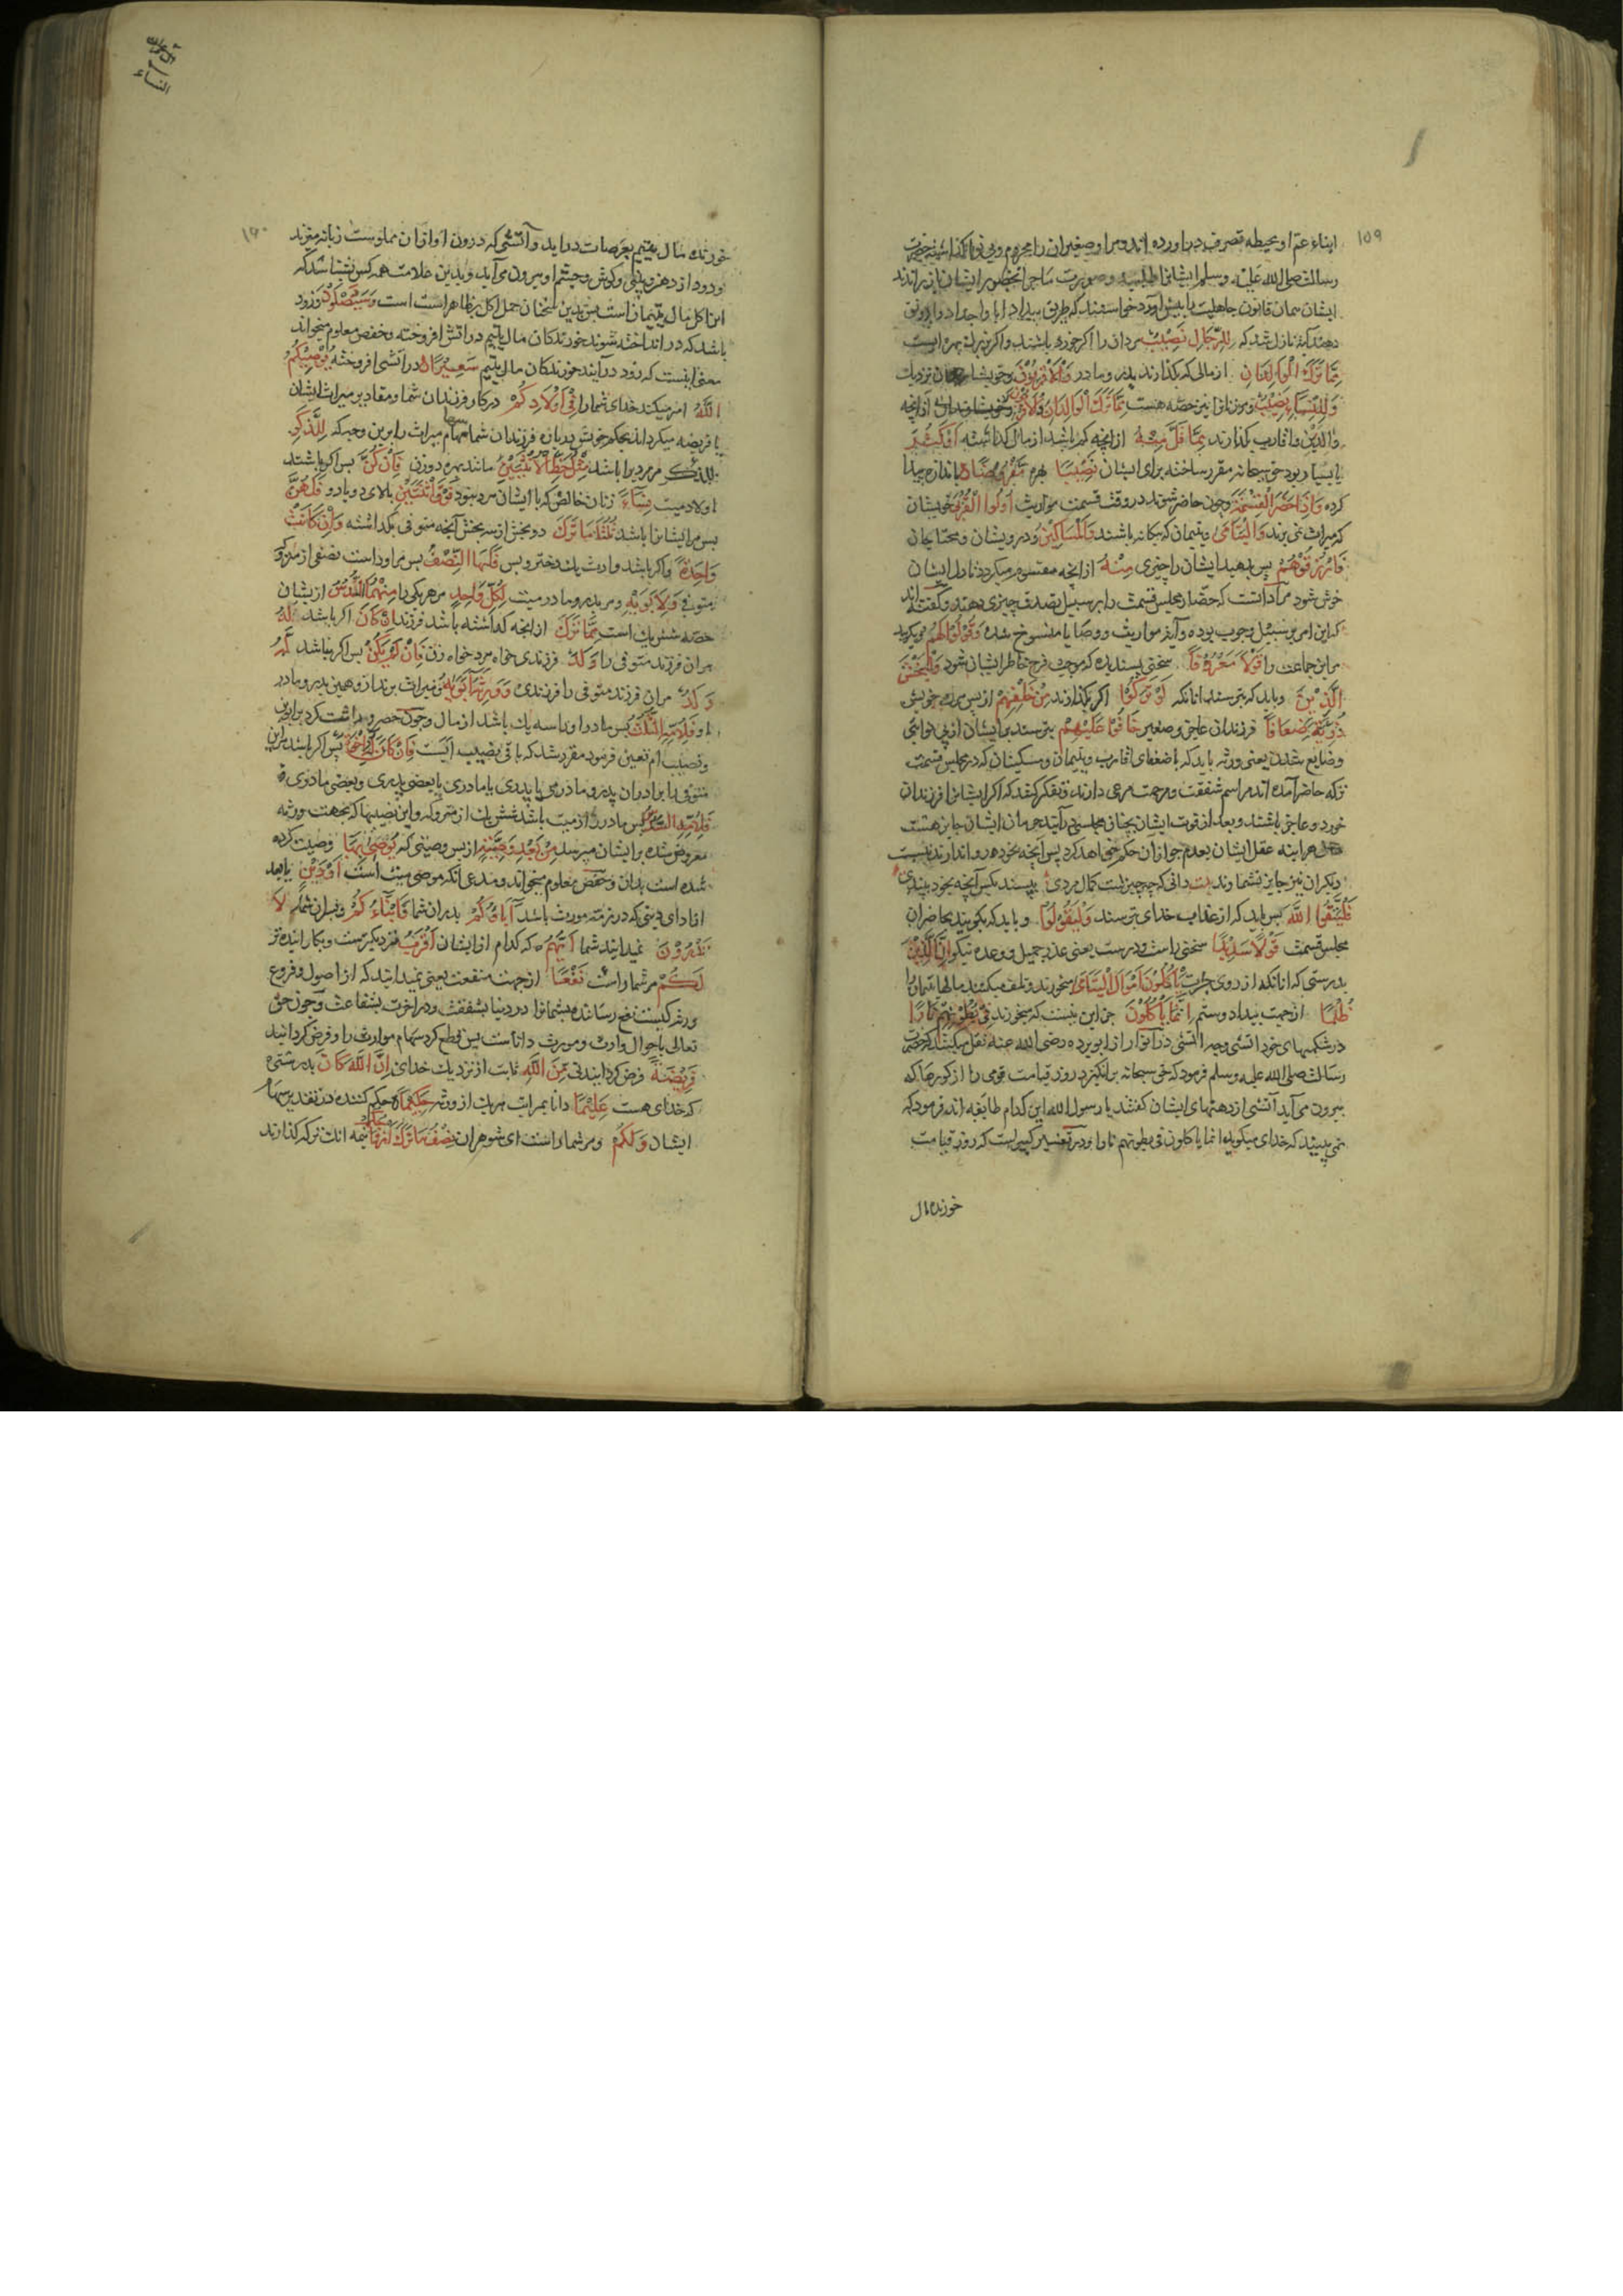 ١٥٩
ابناء عم او بحیطه تصرف در آورده اند و مرا و صغیران را محروم و بی نوا کذاشته حضرت
رسالت صلی الله علیه وسلم ایشانرا طلبیده و صورت ماجرا بحضور ایشان باز راندند
ایشان همان قانون جاهلیت را پیش آورد خواستند که طریق ابا واجداد
نازل شد که لِلرِّجَالِ نَصِیْبٌ مردان را اکر خورد باشند و اکر بزرک بهره ایست
مِمَّا تَرَكَ الْوَالِدَانِ از مالی که بکذارند پدر و مادر وَالْاَقْرَبُوْنَ و خویشان نزدیک
وَلِلنِّسَاءِ نَصِیْبٌ و مر زنانرا نیز حصّه هست مِمَّا تَرَكَ الْوَالِدَانِ وَالْاَقْرَبُوْنَ از انچه
والدین و اقارب کذارند مِمَّا قَلَّ مِنْهُ از انچه کم باشد از مال کذاشته اَوْ كَثُرَ
یا بسیار بود حق سبحانه مقرر ساخته برای ایشان نَصِیْبًا بهره مَّفْرُوْضًا باندازه پیدا
کرده وَاِذَا حَضَرَ الْقِسْمَةَ و چون حاضر شوند در وقت قسمت مواریث اُولُوا الْقُرْبٰی خویشان
که میراث نمی برند وَالْیَتَامٰی و یتیمان که بیکانه باشند وَالْمَسَاكِیْنُ و درویشان و محتاجان
فَارْزُقُوْهُمْ پس بدهید ایشان را چیزی مِنْهُ از انچه مقسوم میکردد تا دل ایشان
خوش شود مراد آنست که حضار مجلس قسمت را بر سبیل تصدق چیزی دهند و کفته اند
که این امر بر سبیل وجوب بوده و آیه مواریث و وصایا منسوخ شده وَقُوْلُوْا لَهُمْ و بکویید
مر این جماعت را قَوْلًا مَعْرُوْفًا سخنی پسندیده که موجب فرح خاطر ایشان شود وَلْیَخْشَ
الَّذِیْنَ و باید که بترسند انانکه لَوْ تَرَكُوْا اکر بکذارند مِنْ خَلْفِهِمْ از پس مرک خویش
ذُرِّیَّةً ضِعَافًا فرزندان عاجز و صغیر خَافُوْا عَلَیْهِمْ بترسند بر ایشان از بی نوایی
و ضایع شدن یعنی ورثه باید که با ضعفای اقارب و یتیمان و مسکینان که در مجلس قسمت
ترکه حاضر آمده اند مراسم شفقت و مرحمت مرعی دارند و تفکر کنند که اکر ایشانرا فرزندان
خورد و عاجز باشند و بعد از فوت ایشان بچنان مجلسی در آیند حرمان ایشان جایز هست
هر اینه عقل ایشان بعدم جواز آن حکم خواهد کرد پس آنچه بخود روا ندارند نسبت
دیکران نیز جایز نشمارند بیت دانی که چه چیزست کمال مردی
فَلْیَتَّقُوا اللّٰهَ پس باید که از عذاب خدای بترسند وَلْیَقُوْلُوْا و باید که بکویند بحاضران
مجلس قسمت قَوْلًا سَدِیْدًا سخنی راست و درست یعنی عذر جمیل و وعده نیکو اِنَّ الَّذِیْنَ
بدرستی که انانکه از روی جرات یَاْكُلُوْنَ اَمْوَالَ الْیَتَامٰی میخورند و تلف میکنند مالها یتیمان را
ظُلْمًا از جهت بیداد و ستم اِنَّمَا یَاْكُلُوْنَ جز این نیست که میخورند فِیْ بُطُوْنِهِمْ نَارًا
در شکمهای خود اتشی در انوار از ابو برده رضی الله عنه نقل میکنند که حضرت
رسالت صلی الله علیه وسلم فرمود که حق سبحانه بر انکیزد روز قیامت قومی را از کورها که
بیرون می آید آتشی از دهنهای ایشان کفتند یا رسول الله این کدام طایفه اند فرمود که
نمی بینید که خدای میکوید انما یاکلون فی بطونهم نارا و در تفسیر کبیر است که روز قیامت
خورنده مال
١٦٠
خورنده مال یتیم بعرصات در آید و آتشی که درون او ازان مملوست زبانه میزند
و دود از دهن و بینی و کوش و چشم او بیرون می آید و بدین علامت همه کس بشناسد که
این اکل مال یتیمان است پس بدین سخنان حمل اکل بر ظاهر است است وَسَیَصْلَوْنَ و زود
باشد که در انداخته شوند خورندکان مال یتیم در اتش افروخته و حفص معلوم میخواند
معنی اینست که زود در آیند خورندکان مال یتیم سَعِیْرًا در اتشی افروخته یُوْصِیْكُمُ
اللّٰهُ امر میکند خدای شما را فِیْ اَوْلَادِكُمْ در کار فرزندان شما و مقادیر میراث ایشان
یا فریضه میکرداند بحکم خویش در باره فرزندان شما سهام میراث را برین وجه که لِلذَّكَرِ
للذكر مر مرد را باشد مِثْلُ حَظِّ الْاُنْثَیَیْنِ مانند بهره دو زن فَاِنْ كُنَّ پس اکر باشند
اولاد میت نِسَآءً زنان خالص که با ایشان مرد نبود فَوْقَ اثْنَتَیْنِ بالای دو یا دو فَلَهُنَّ
پس مر ایشانرا باشد ثُلُثَا مَا تَرَكَ دو بخش از سه بخش آنچه متوفی بکذاشته وَاِنْ كَانَتْ
وَاحِدَةً و اکر باشد وارث یک دختر و بس فَلَهَا النِّصْفُ پس مر او راست نصفی از متروکه
متوفی وَلِاَبَوَیْهِ و مر پدر و مادر میت لِكُلِّ وَاحِدٍ مر هر یکی را مِنْهُمَا السُّدُسُ از یشان
حصّه شش یک است مِمَّا تَرَكَ از انچه کذاشته باشد فرزند اِنْ كَانَ اکر باشد لَهُ
مر ان فرزند متوفی را وَلَدٌ فرزندی خواه مرد خواه زن فَاِنْ لَّمْ یَكُنْ پس اکر نباشد لَّهُ
وَلَدٌ مر ان فرزند متوفی را فرزندی وَوَرِثَهٗ اَبَوَاهُ و میراث برند ازو همین پدر و مادر
او فَلِاُمِّهِ الثُّلُثُ پس مادر او را سه یک باشد از مال و چون حصر وراثت کرد بر ابوین
و نصیب ام تعیین فرمود مقرر شد که باقی نصیب ابست فَاِنْ كَانَ لَهٗ اِخْوَةٌ پس اکر باشد مر این
متوفی را برادران پدر و مادری یا پدری یا مادری یا بعضی پدری و بعضی مادری
فَلِاُمِّهِ السُّدُسُ پس مادر را از میت باشد شش یک از متروکه و این نصیبها که بجهت ورثه
مفروض شده بر ایشان میرسد مِنْ بَعْدِ وَصِیَّةٍ از پس وصیتی که یُوْصٰی بِهَا وصیت کرده
شده است بدان و حفص معلوم میخواند و مدعی انکه موصی میت است اَوْ دَیْنٍ یا بعد
از ادای دینی که در ذمه مورث باشد آبَاؤُكُمْ پدران شما وَاَبْنَاءُكُمْ و پسران شما لَا
تَدْرُوْنَ نمیدانید شما اَیُّهُمْ که کدام از ایشان اَقْرَبُ نزدیکترست و بکار اینده تر
لَكُمْ مر شما راست نَفْعًا از جهت منفعت یعنی نمیدانید که از اصول و فروع
ورثه کیست نفع رسانده بشمایان در دنیا بشفقت و در اخرت بشفاعت و چون حق
تعالی باحوال وارث و مورث داناست پس قطع کرد سهام مواریث را و فرض کردانید
فَرِیْضَةً فرض کردانیدنی مِّنَ اللّٰهِ ثابت از نزدیک خدای اِنَّ اللّٰهَ كَانَ بدرستی
که خدای هست عَلِیْمًا دانا بمراتب هر یک از ورثه حَكِیْمًا حکم کننده در تقدیر سهام
ایشان وَلَكُمْ و مر شما راست ای شوهران نِصْفُ مَا تَرَكَ اَزْوَاجُكُمْ نیمه انت ترکه کذارند